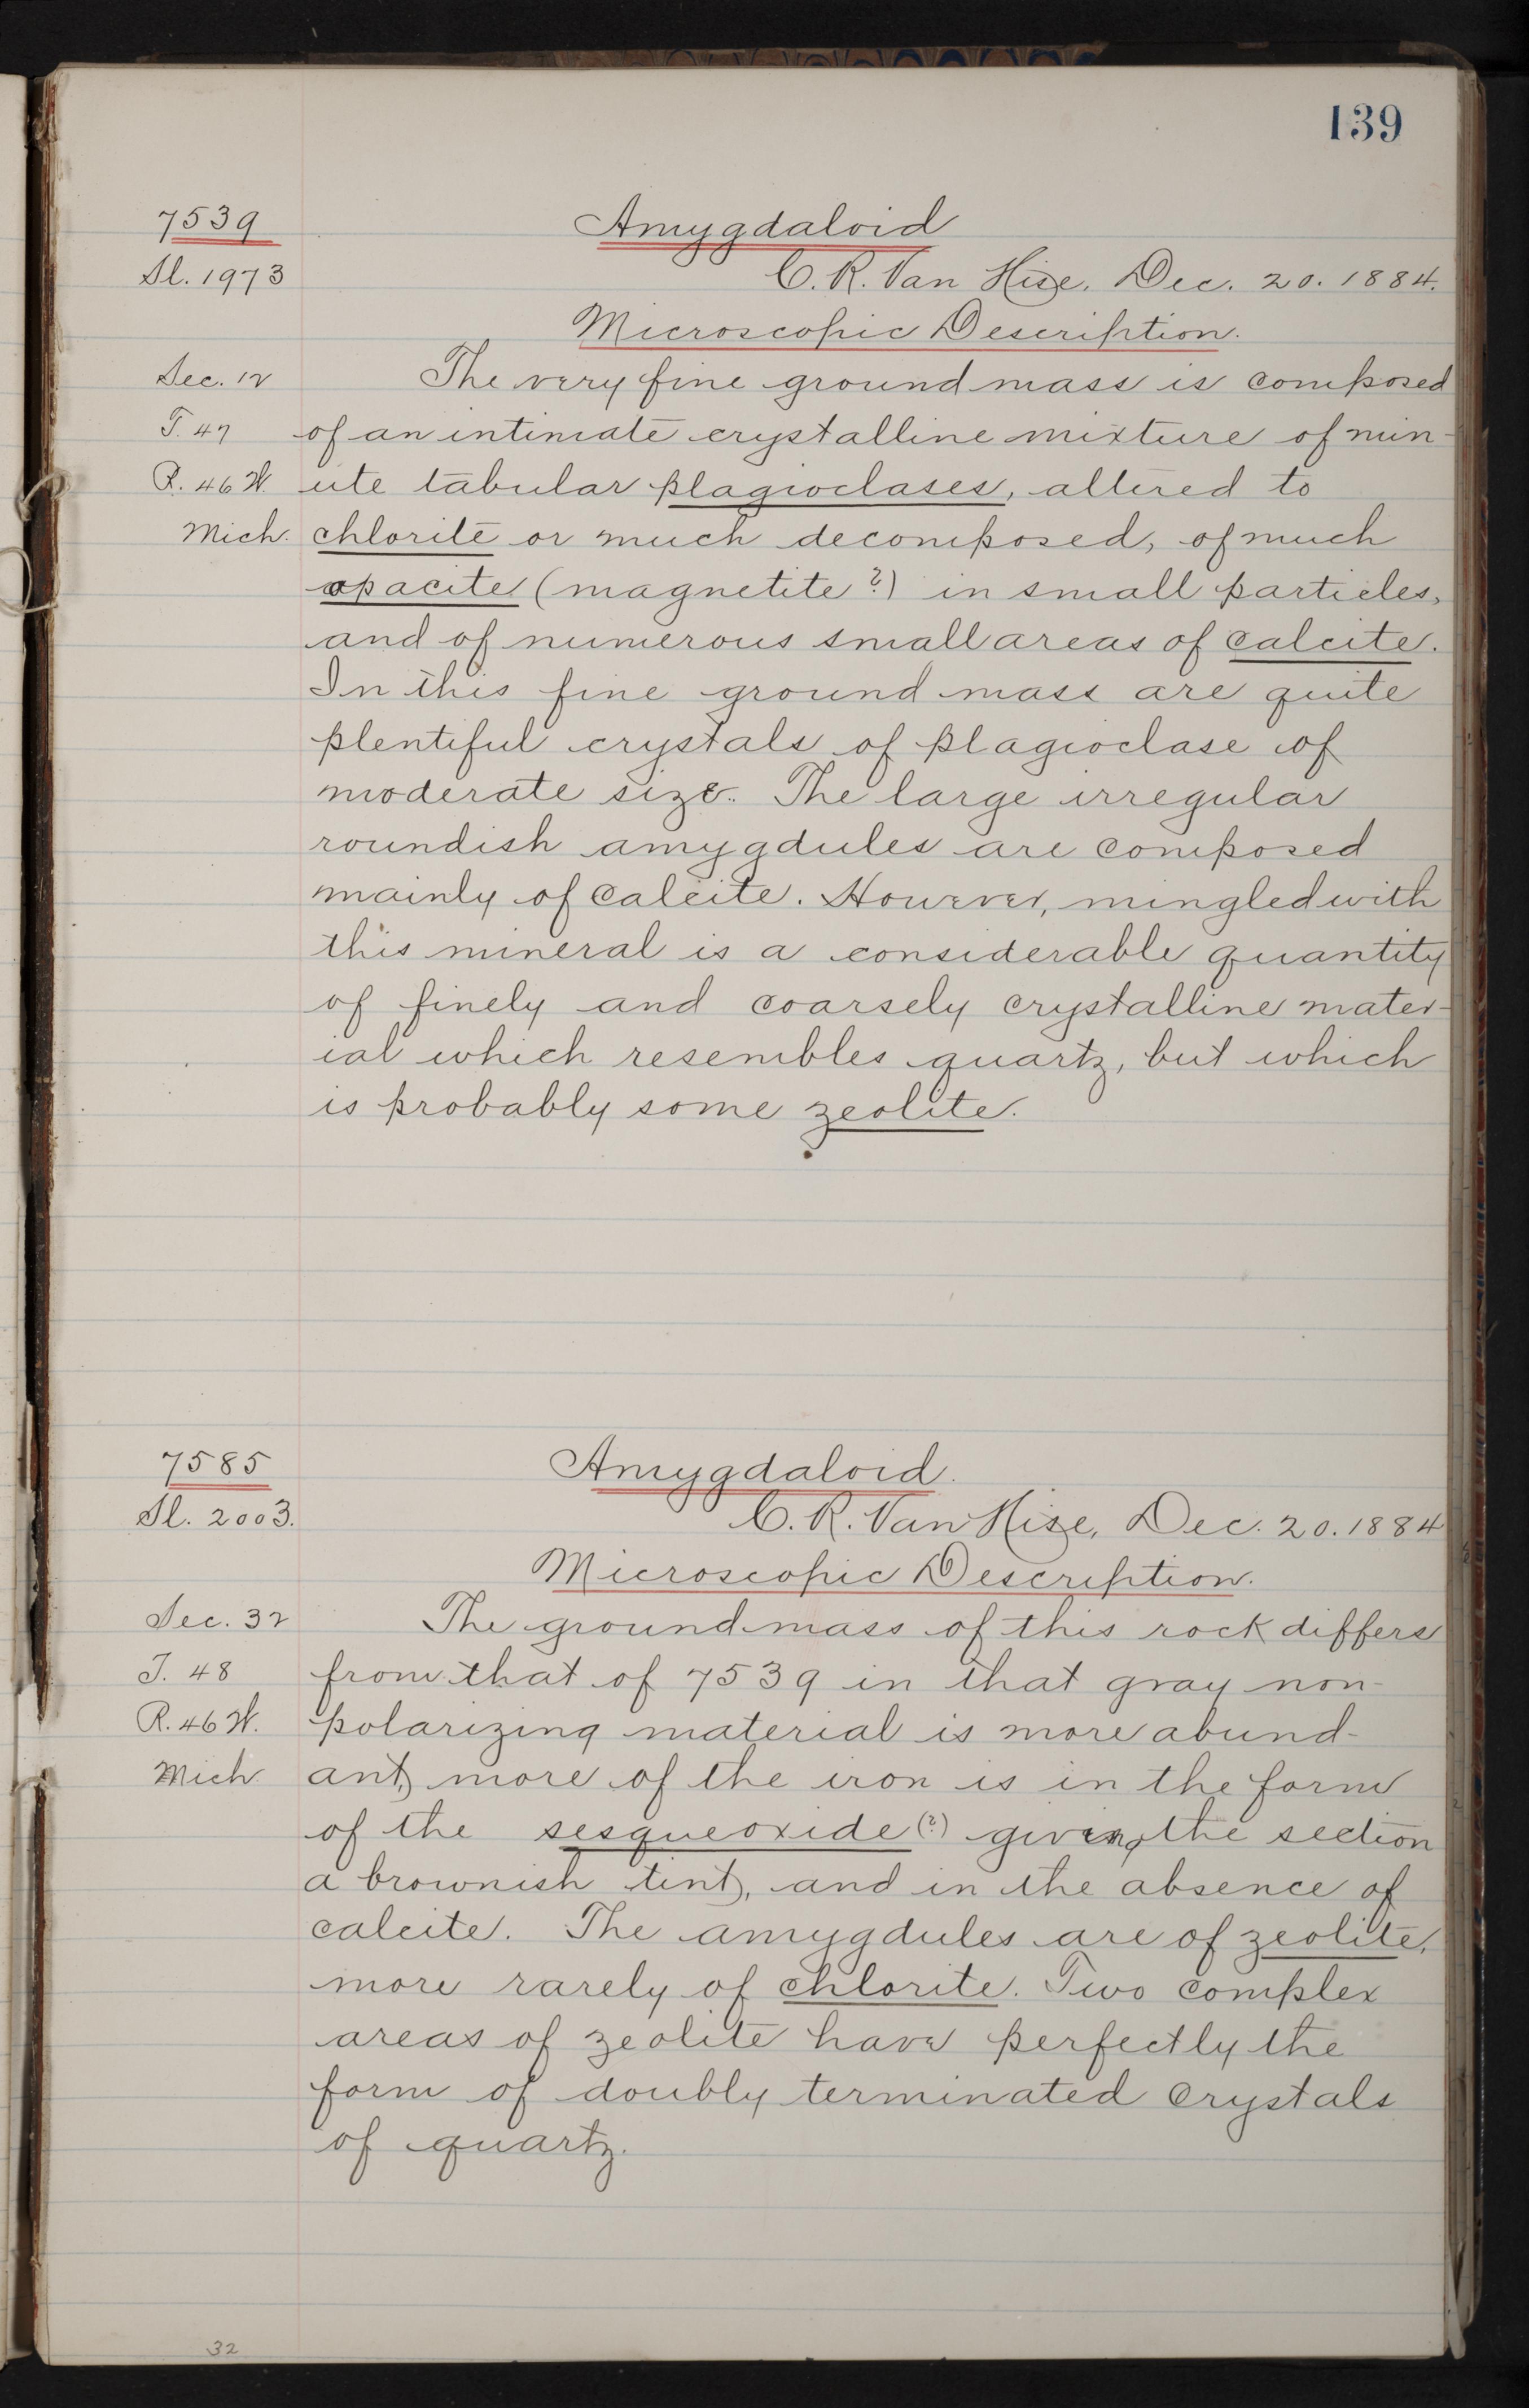 139
7539
Amygdaloid
Sl. 1973
C. R. Van Hise, Dec. 20. 1884.
Microscopic Description.
Sec. 12
The very fine groundmass is composed
T. 47
of an intimate crystalline mixture of min-
R. 46 W.
ute tabular plagioclases, altered to
Mich.
chlorite or much decomposed, of much
opacite (magnetite?) in small particles,
and of numerous small areas of calcite.
In this fine ground mass are quite
plentiful crystals of plagioclase of
moderate size. The large irregular
roundish amygdules are composed
mainly of calcite. However, mingled with
this mineral is a considerable quantity
of finely and coarsely crystalline mater-
ial which resembles quartz, but which
is probably some zeolite.
7585
Amygdaloid.
Sl. 2003.
C. R. Van Hise, Dec. 20. 1884
Microscopic Description.
Sec. 32
The groundmass of this rock differs
T. 48
from that of 7539 in that gray non-
R. 46 W.
polarizing material is more abund-
Mich.
ant, more of the iron is in the form
of the sesqueoxide (?) giving the section
a brownish tint, and in the absence of
calcite. The amygdules are of zeolite,
more rarely of chlorite. Two complex
areas of zeolite have perfectly the
form of doubly terminated crystals
of quartz.
32